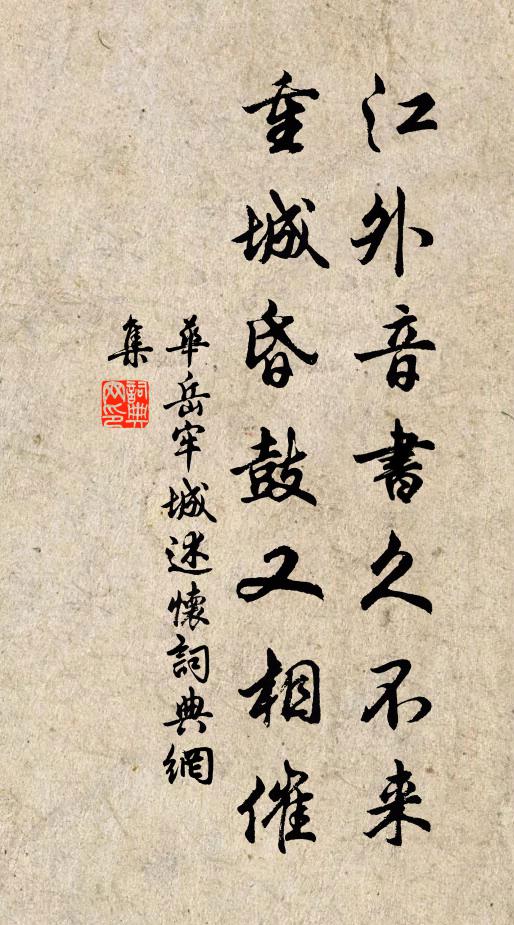 江外音書久不来
重城昏鼓又相催
華岳牢城述懷詞典網
集
詞典
网印